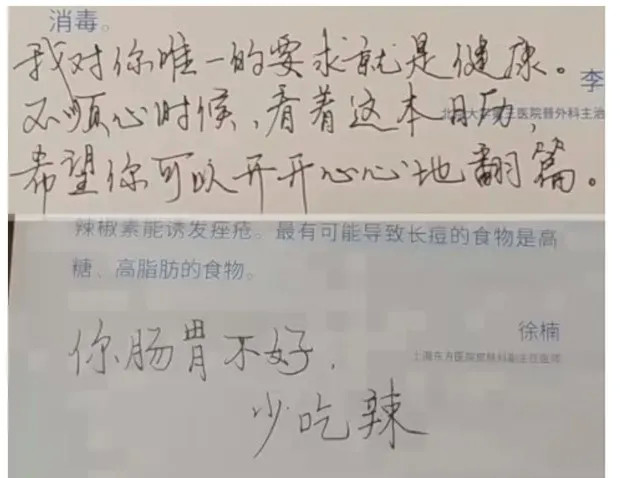 消毒。
我对你唯一的要求就是健康。
李
不顺心时候、看着这本日历,
北京大学第三医院普外科主治
希望你可以开开心心地翻篇。
辣椒素能诱发痤疮。最有可能导致长痘的食物是高
糖、高脂肪的食物。
徐楠
上海东方医院皮肤科副主任医师
你肠胃不好,
少吃辣